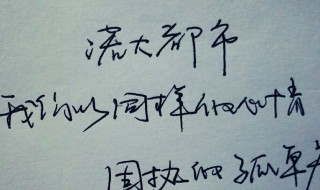 大都市
我们以同样的心情
固执的孤单